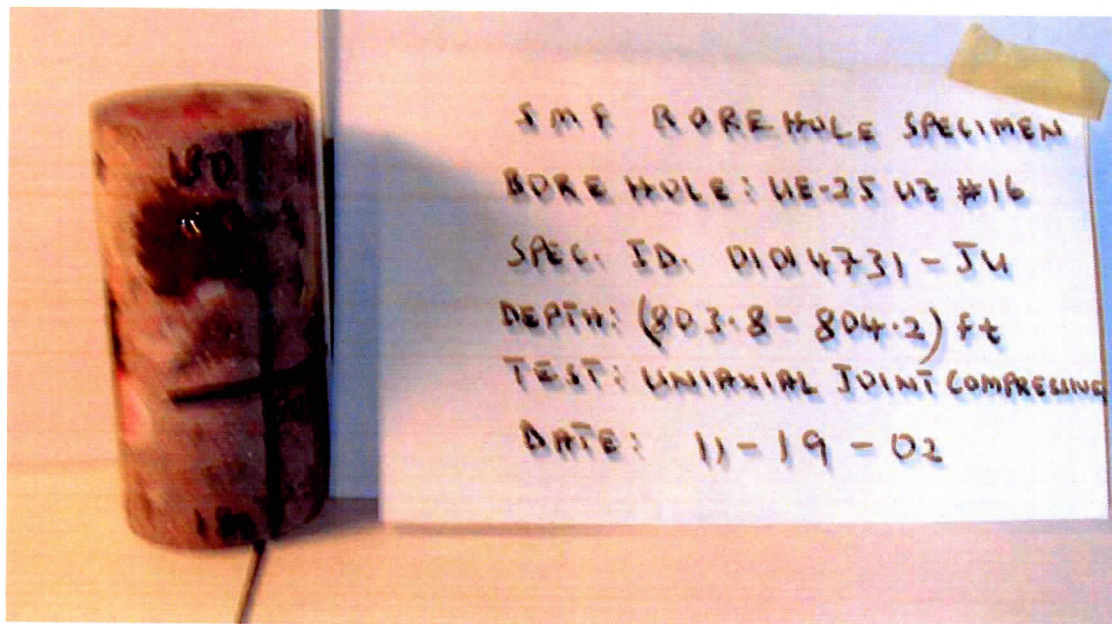 SMF BOREHOLE SPECIMEN
BORE HOLE: UE-25 UZ #16
SPEC. ID. 01014731-JU
DEPTH: (803.8 - 804.2) ft
TEST: UNIAXIAL JOINT
DATE: 11-19-02
180